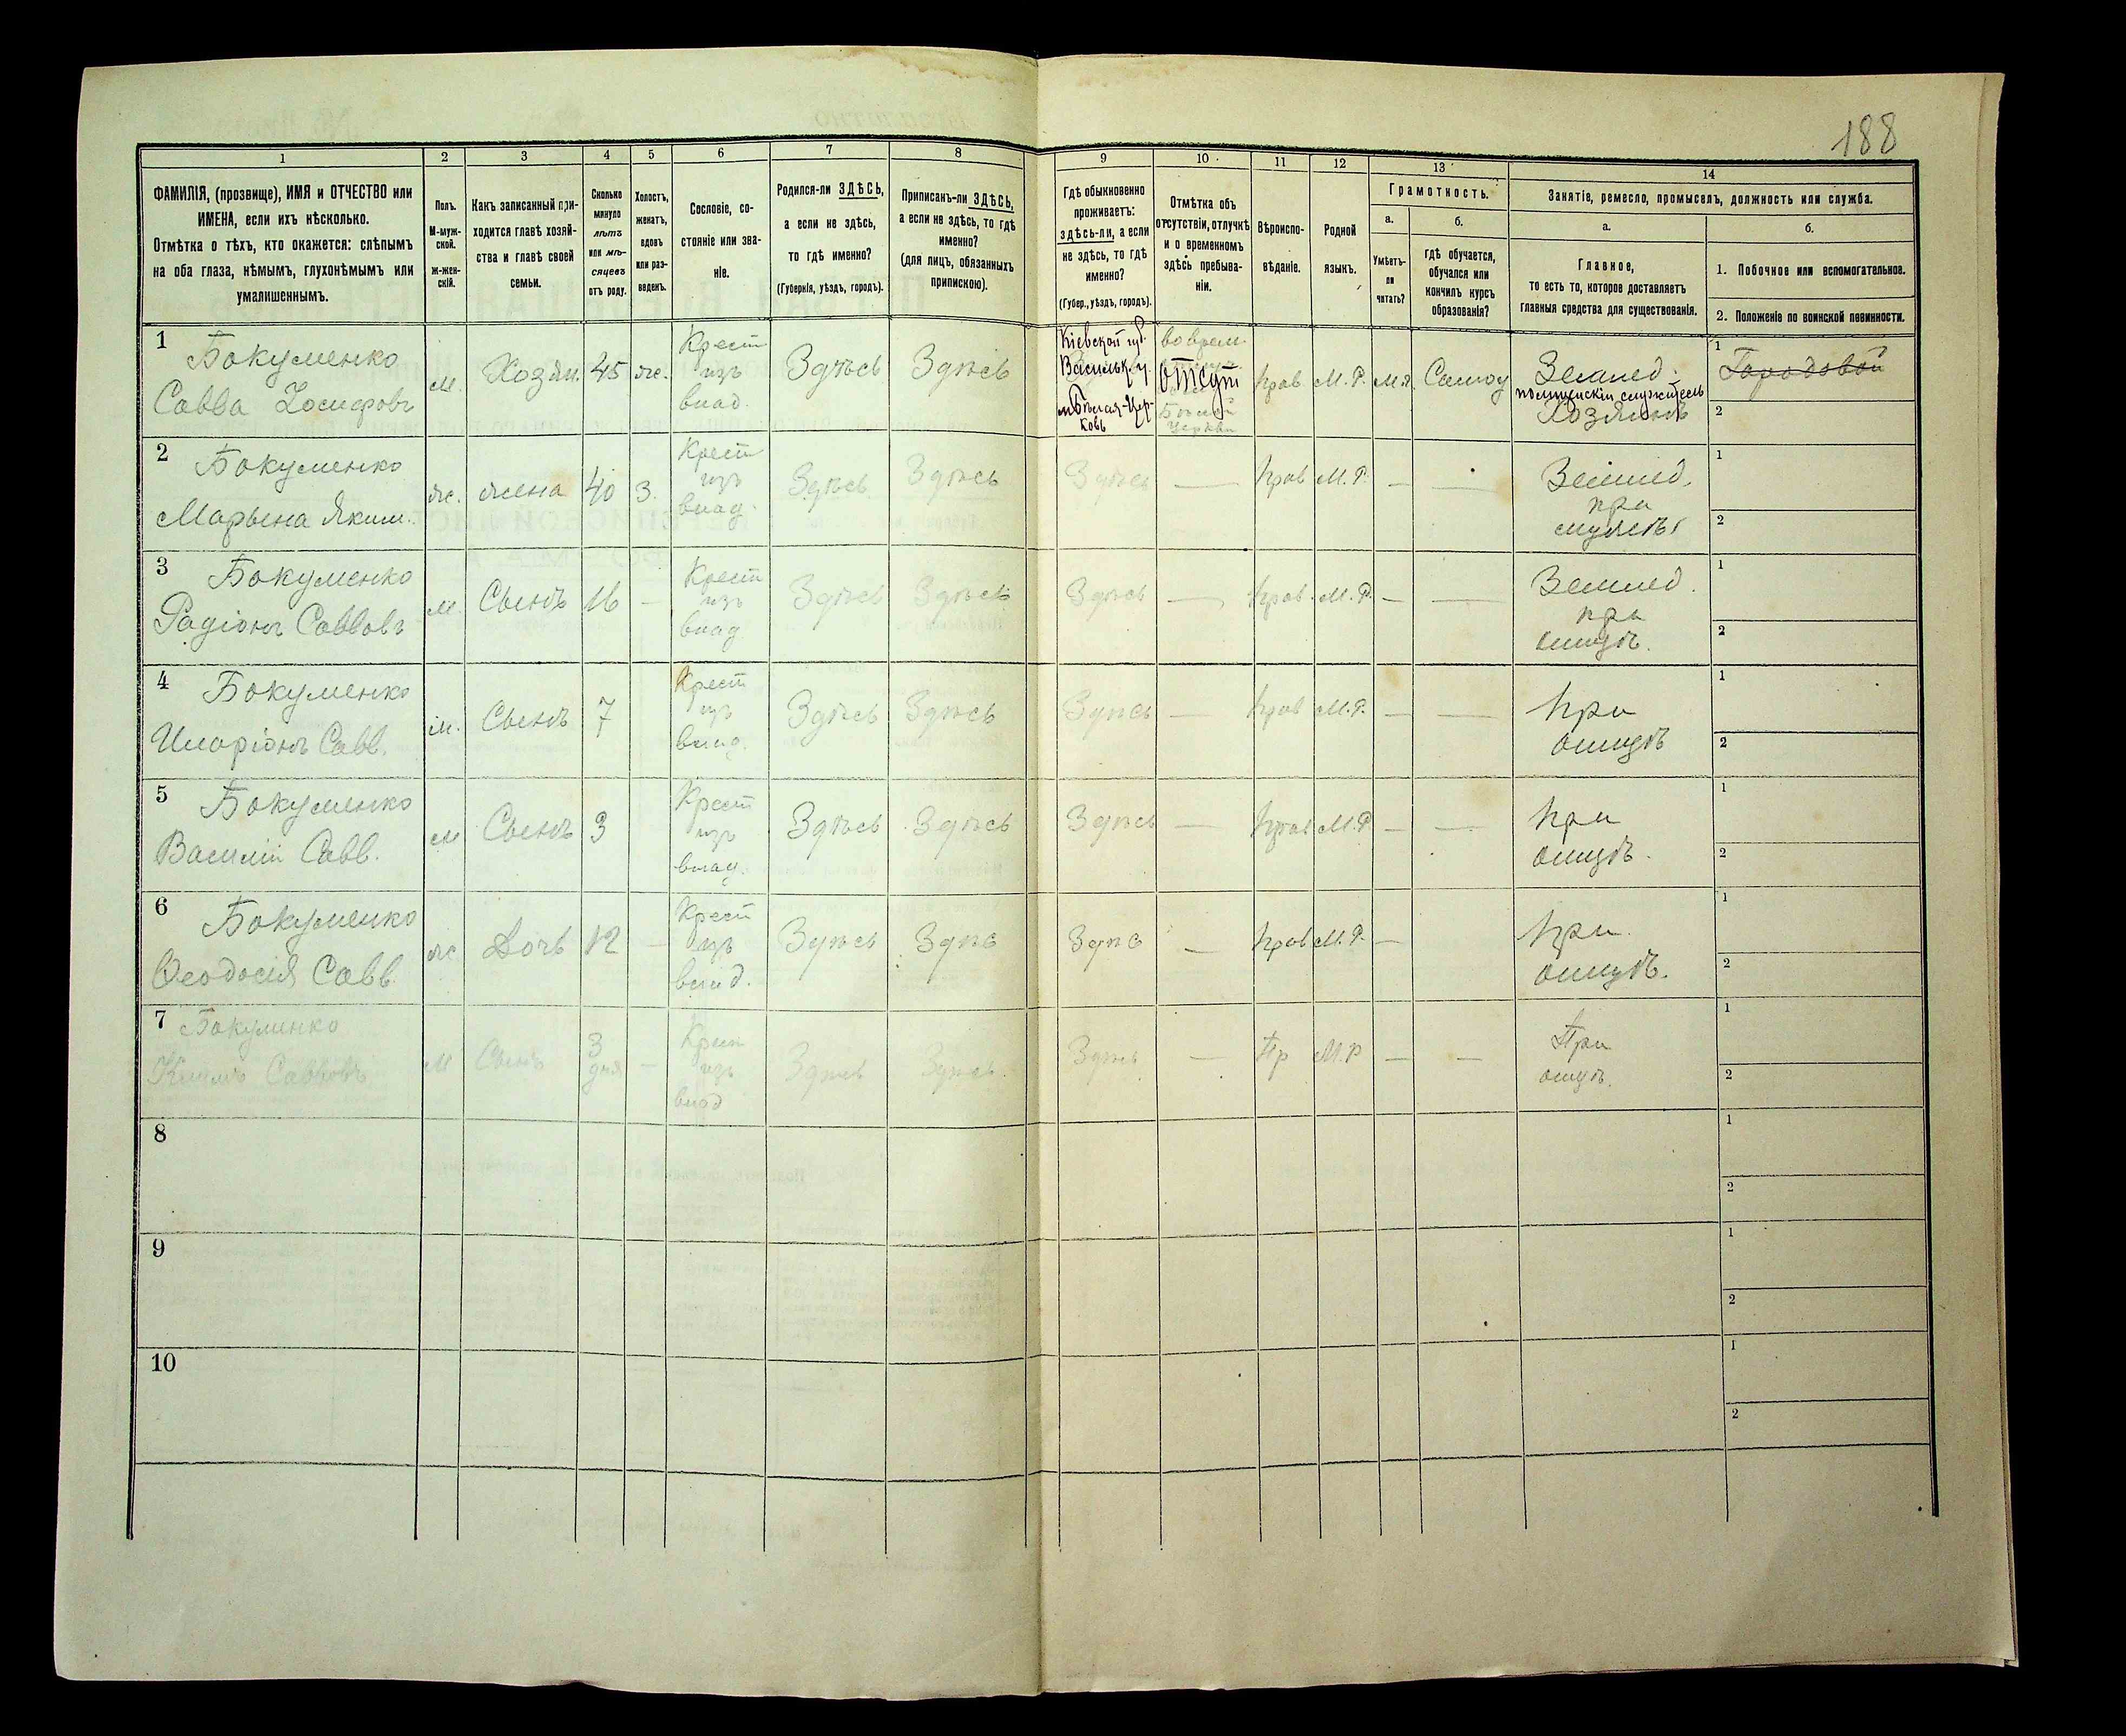 188
1 2 3 4 5 6 7 8 9 10 11 12 13 14
ФАМИЛІЯ, (прозвище), ИМЯ и ОТЧЕСТВО или
ИМЕНА, если ихъ нѣсколько.
Отмѣтка о тѣхъ, кто окажется: слѣпымъ
на оба глаза, нѣмымъ, глухонѣмымъ или
умалишеннымъ.
Полъ.
М-муж-
ской.
ж-жен-
скій.
Какъ записанный при-
ходится главѣ хозяй-
ства и главѣ своей
семьи.
Сколько
минуло
лѣтъ
или мѣ-
сяцевъ
отъ роду.
Холостъ,
женатъ,
вдовъ
или раз-
веденъ.
Сословіе, со-
стояніе или зва-
ніе.
Родился-ли ЗДѢСЬ,
а если не здѣсь,
то гдѣ именно?
(Губернія, уѣздъ, городъ).
Приписанъ-ли ЗДѢСЬ,
а если не здѣсь, то гдѣ
именно?
(для лицъ, обязанныхъ
припискою).
Гдѣ обыкновенно
проживаетъ:
здѣсь-ли, а если
не здѣсь, то гдѣ
именно?
(Губер., уѣздъ, городъ).
Отмѣтка объ
отсутствіи, отлучкѣ
и о временномъ
здѣсь пребыва-
ніи.
Вѣроиспо-
вѣданіе.
Родной
языкъ.
Грамотность.
а.
Умѣетъ-
ли
читать?
б.
гдѣ обучается,
обучался или
кончилъ курсъ
образованія?
Занятіе, ремесло, промыселъ, должность или служба.
а.
Главное,
то есть то, которое доставляетъ
главныя средства для существованія.
б.
1. Побочное или вспомогательное.
2. Положеніе по воинской повинности.
1
Бокуменко
Савва Іосифовъ
м.
Хозяи.
45
ж.
Крест
изъ
влад.
Здѣсь
Здѣсь
Кіевской губ.
Васильк. у.
м Бѣлая-Цер-
ковь
во врем.
отсут
Бѣлой
Церкви
Прав
М. Р.
Самоу
Землед.
полицейскій служитель
Хозяинъ
1 Городовой
2
2
Бокуменко
Марьена Яким.
ж.
жена
40
З.
Крест
изъ
влад.
Здѣсь
Здѣсь
Здѣсь
—
Прав
М. Р.
—
—
Землед.
при
мужѣ
1
2
3
Бокуменко
Радіонъ Саввовъ
м.
Сынъ
16
—
Крест
изъ
влад
Здѣсь
Здѣсь
Здѣсь
—
Прав.
М. Р.
—
—
Землед.
при
отцѣ.
1
2
4
Бокуменко
Иларіонъ Савв.
м.
Сынъ
7
Крест
изъ
влад.
Здѣсь
Здѣсь
Здѣсь
—
Прав
М. Р.
—
—
При
отцѣ
1
2
5
Бокуменко
Василій Савв.
м
Сынъ
3
Крест
изъ
влад.
Здѣсь
Здѣсь
Здѣсь
—
Прав
М. Р
—
—
При
отцѣ.
1
2
6
Бокуменко
Ѳеодосія Савв.
ж
Дочь
12
—
Крест
изъ
влад.
Здѣсь
Здѣс
Здѣс
—
Прав
М. Р.
—
При
отцѣ.
1
2
7
Бокуменко
Саввовъ
м
Сынъ
3
дня
—
Крест
изъ
влад
Здѣсь
Здѣсь
Здѣсь
—
Пр
М. Р
—
—
При
отцѣ.
1
2
8
1
2
9
1
2
10
1
2